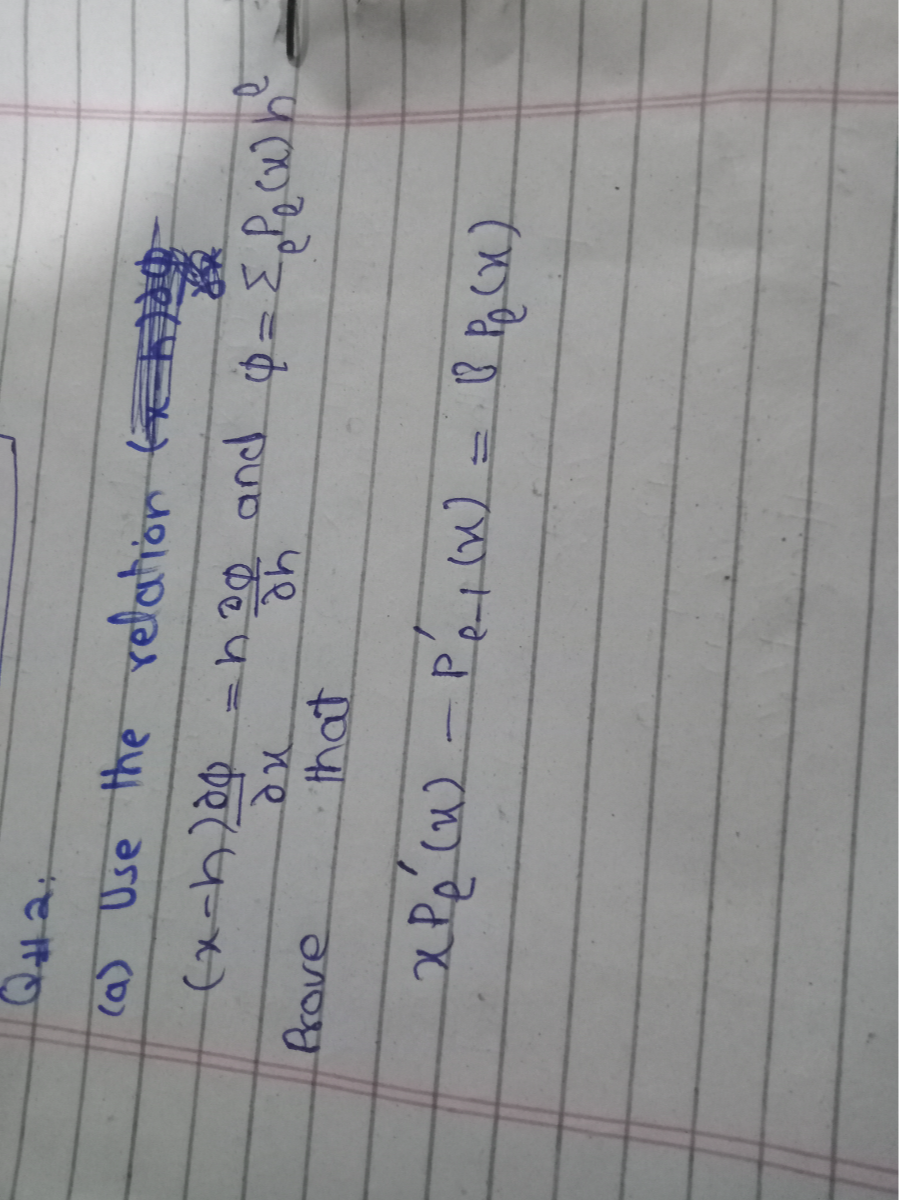 Q#2:
(a) Use the relation
(x-h)∂φ/∂x = h∂φ/∂h and φ = Σ_ℓ P_ℓ(x)h^ℓ
Prove that
xP'_ℓ(x) - P'_ℓ-1(x) = P_ℓ(x)